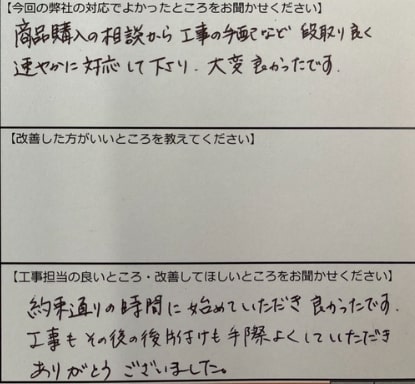 【今回の弊社の対応でよかったところをお聞かせください】
商品購入の相談から工事の手配など段取り良く
速やかに対応して下さり、大変良かったです。
【改善した方がいいところを教えてください】
【工事担当の良いところ・改善してほしいところをお聞かせください】
約束通りの時間に始めていただき良かったです。
工事もその後の後片付けも手際よくしていただき
ありがとうございました。